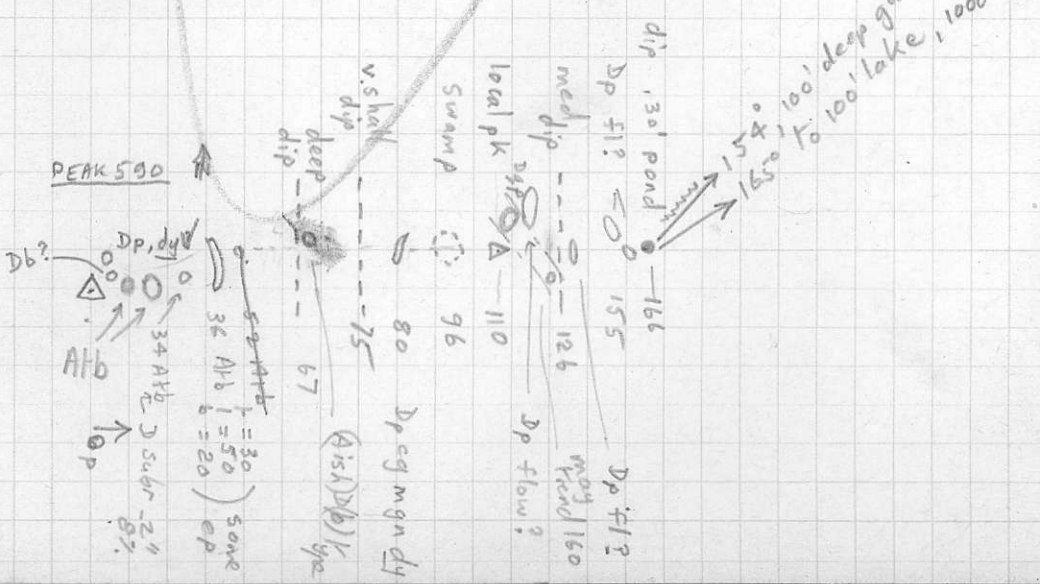 PEAK 590
Db?
Dp, dy
Atb
34 Atb
D subr -2"
8%
36 Atb
l = 50
b = 20
some ep
52 Atb
l = 30
deep dip
67
v. shal dip
75
80
Dp cg mgn dy
swamp
96
local pk
110
Dp flow?
med dip
126
may trend 160
Dp fl?
155
Dp fl?
dip, 30' pond
166
154°, 100' deep
165° To 100' lake, 1000